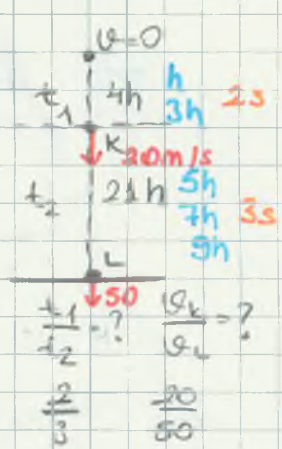 ϑ=0
t₁ 4h h 3h 2s
K 20m/s
t₂ 21h 5h 7h 9h 3s
L
50
t₁/t₂ = ? ϑK/ϑL = ?
2/3 20/50